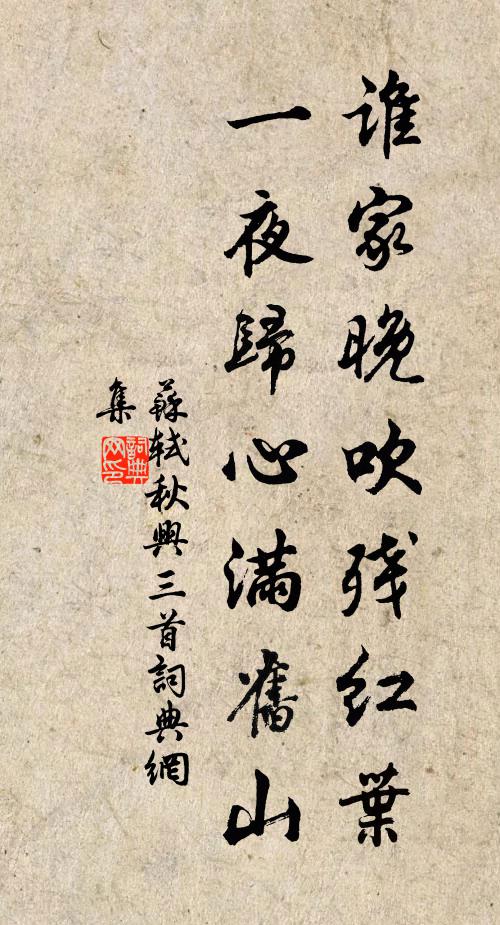 誰家晚吹殘紅葉
一夜歸心滿舊山
蘇軾秋興三首詞典網
集
詞典
网印